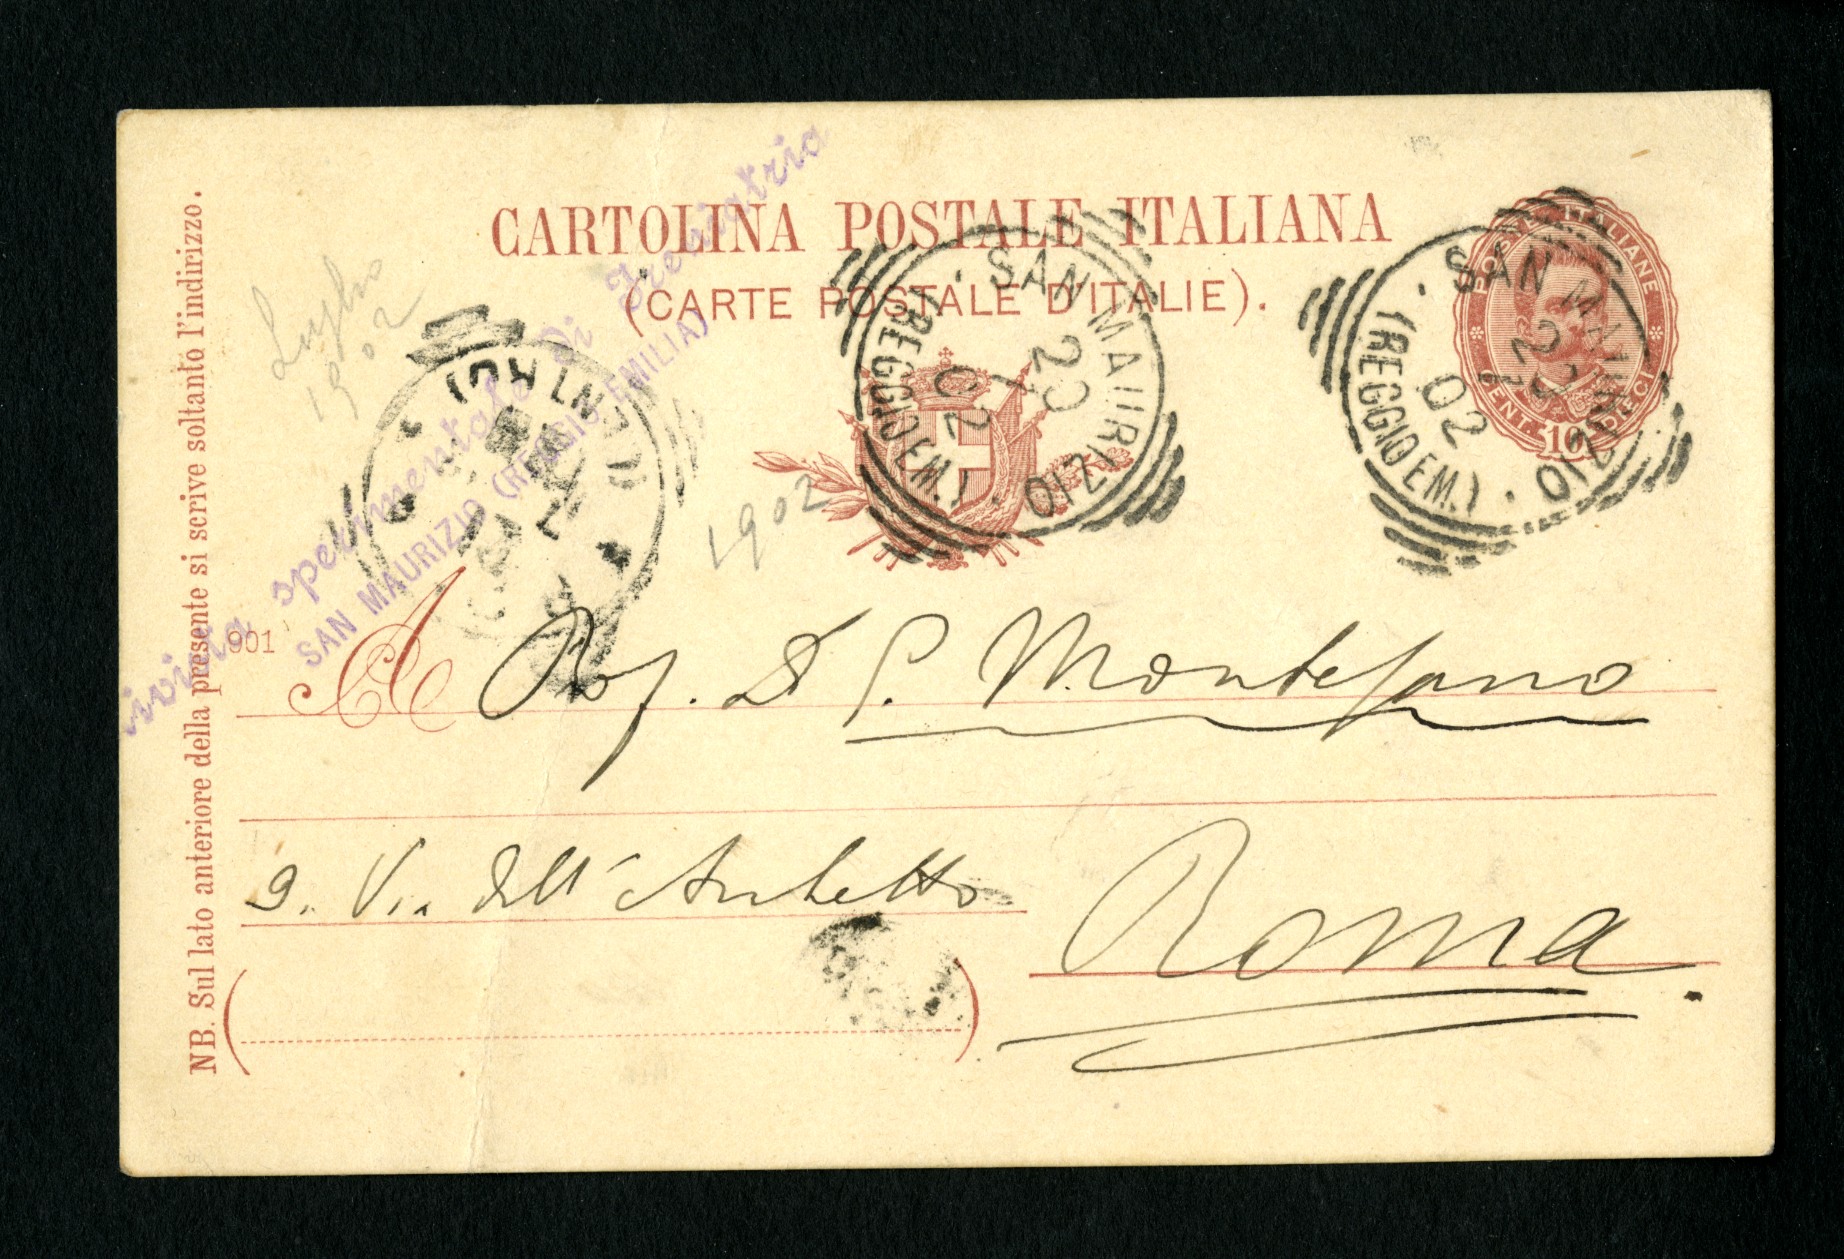 CARTOLINA POSTALE ITALIANA
(CARTE POSTALE D'ITALIE).
NB. Sul lato anteriore della presente si scrive soltanto l'indirizzo.
Rivista sperimentale di Freniatria
SAN MAURIZIO (REGGIO EMILIA)
Luglio
1902
SAN MAURIZIO
(REGGIO EM.)
20
7
02
SAN MAURIZIO
(REGGIO EM.)
20
7
02
POSTE ITALIANE
CENT. 10 DIECI
(CENTRO)
7
1902
901
A Prof. Dr G. Montesano
9. Via dell'Archetto
Roma